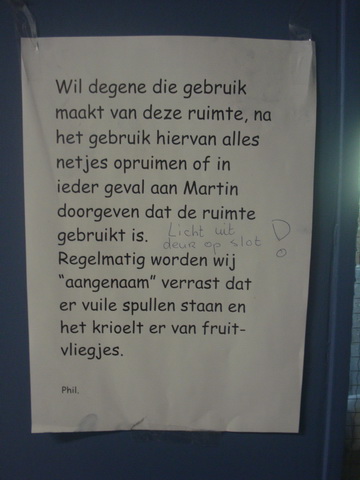 Wil degene die gebruik
maakt van deze ruimte, na
het gebruik hiervan alles
netjes opruimen of in
ieder geval aan Martin
doorgeven dat de ruimte
gebruikt is. Licht uit
deur op slot !
Regelmatig worden wij
“aangenaam” verrast dat
er vuile spullen staan en
het krioelt er van fruit-
vliegjes.
Phil.